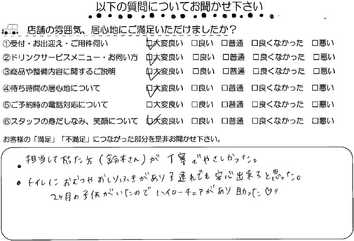 以下の質問についてお聞かせ下さい
店舗の雰囲気、居心地にご満足いただけましたか?
①受付・お出迎え・ご用件伺い □大変良い □良い □普通 □良くなかった □悪い
②ドリンクサービスメニュー・お伺い方 □大変良い □良い □普通 □良くなかった □悪い
③商品や整備内容に関するご説明 □大変良い □良い □普通 □良くなかった □悪い
④待ち時間の居心地について □大変良い □良い □普通 □良くなかった □悪い
⑤ご予約時の電話対応について □大変良い □良い □普通 □良くなかった □悪い
⑥スタッフの身だしなみ、笑顔について □大変良い □良い □普通 □良くなかった □悪い
お客様の「満足」「不満足」につながった部分を是非お聞かせ下さい。
・担当して下さった方(鈴木さん)が丁寧でやさしかった。
・トイレにおむつやおしりふきがあり子連れでも安心出来ると思った。
2ヶ月の子供がいたのでハイローチェアがあり助かった♡